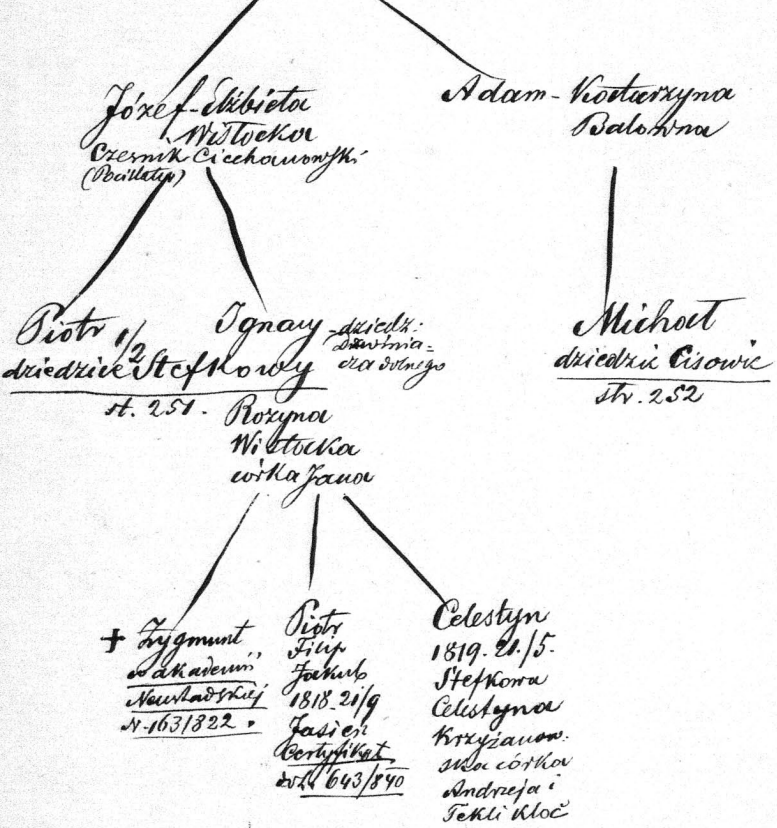 Józef-Elżbieta
Wisłocka
Czesnik Ciechanowski
Adam-Katarzyna
Balowna
Piotr 1/2
Ignacy
-dziedz:
Dzwinia=
cza dolnego
dziedzice Stefkowy
st. 251.
Rozyna
Wisłocka
córka Jana
Michał
dziedzic Cisowic
str. 252
+ Zygmunt
w akademii
Neustadskiej
N-163/822.
Piotr
Filip
Jakub
1818-21/9
Jasień
Certyfikat
643/840
Celestyn
1819.21/5.
Stefkowa
Celestyna
Krzyżanow:
ska córka
Andrzeja i
Tekli Kloč